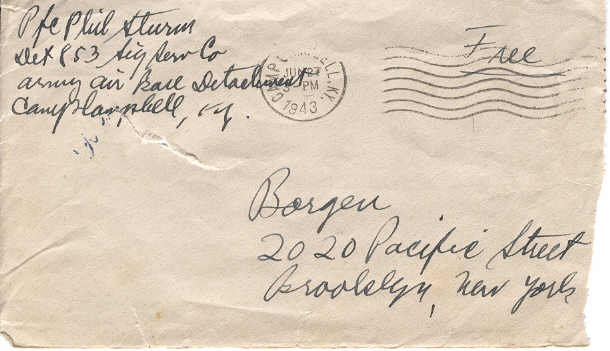 Pfc Phil Sturm
Det 853 Sig Serv Co
army air Base Detachment
Camp Campbell, Ky.
CAMP CAMPBELL, KY.
JUN 27
PM
1943
Free
Borgen
2020 Pacific Street
Brooklyn, New York